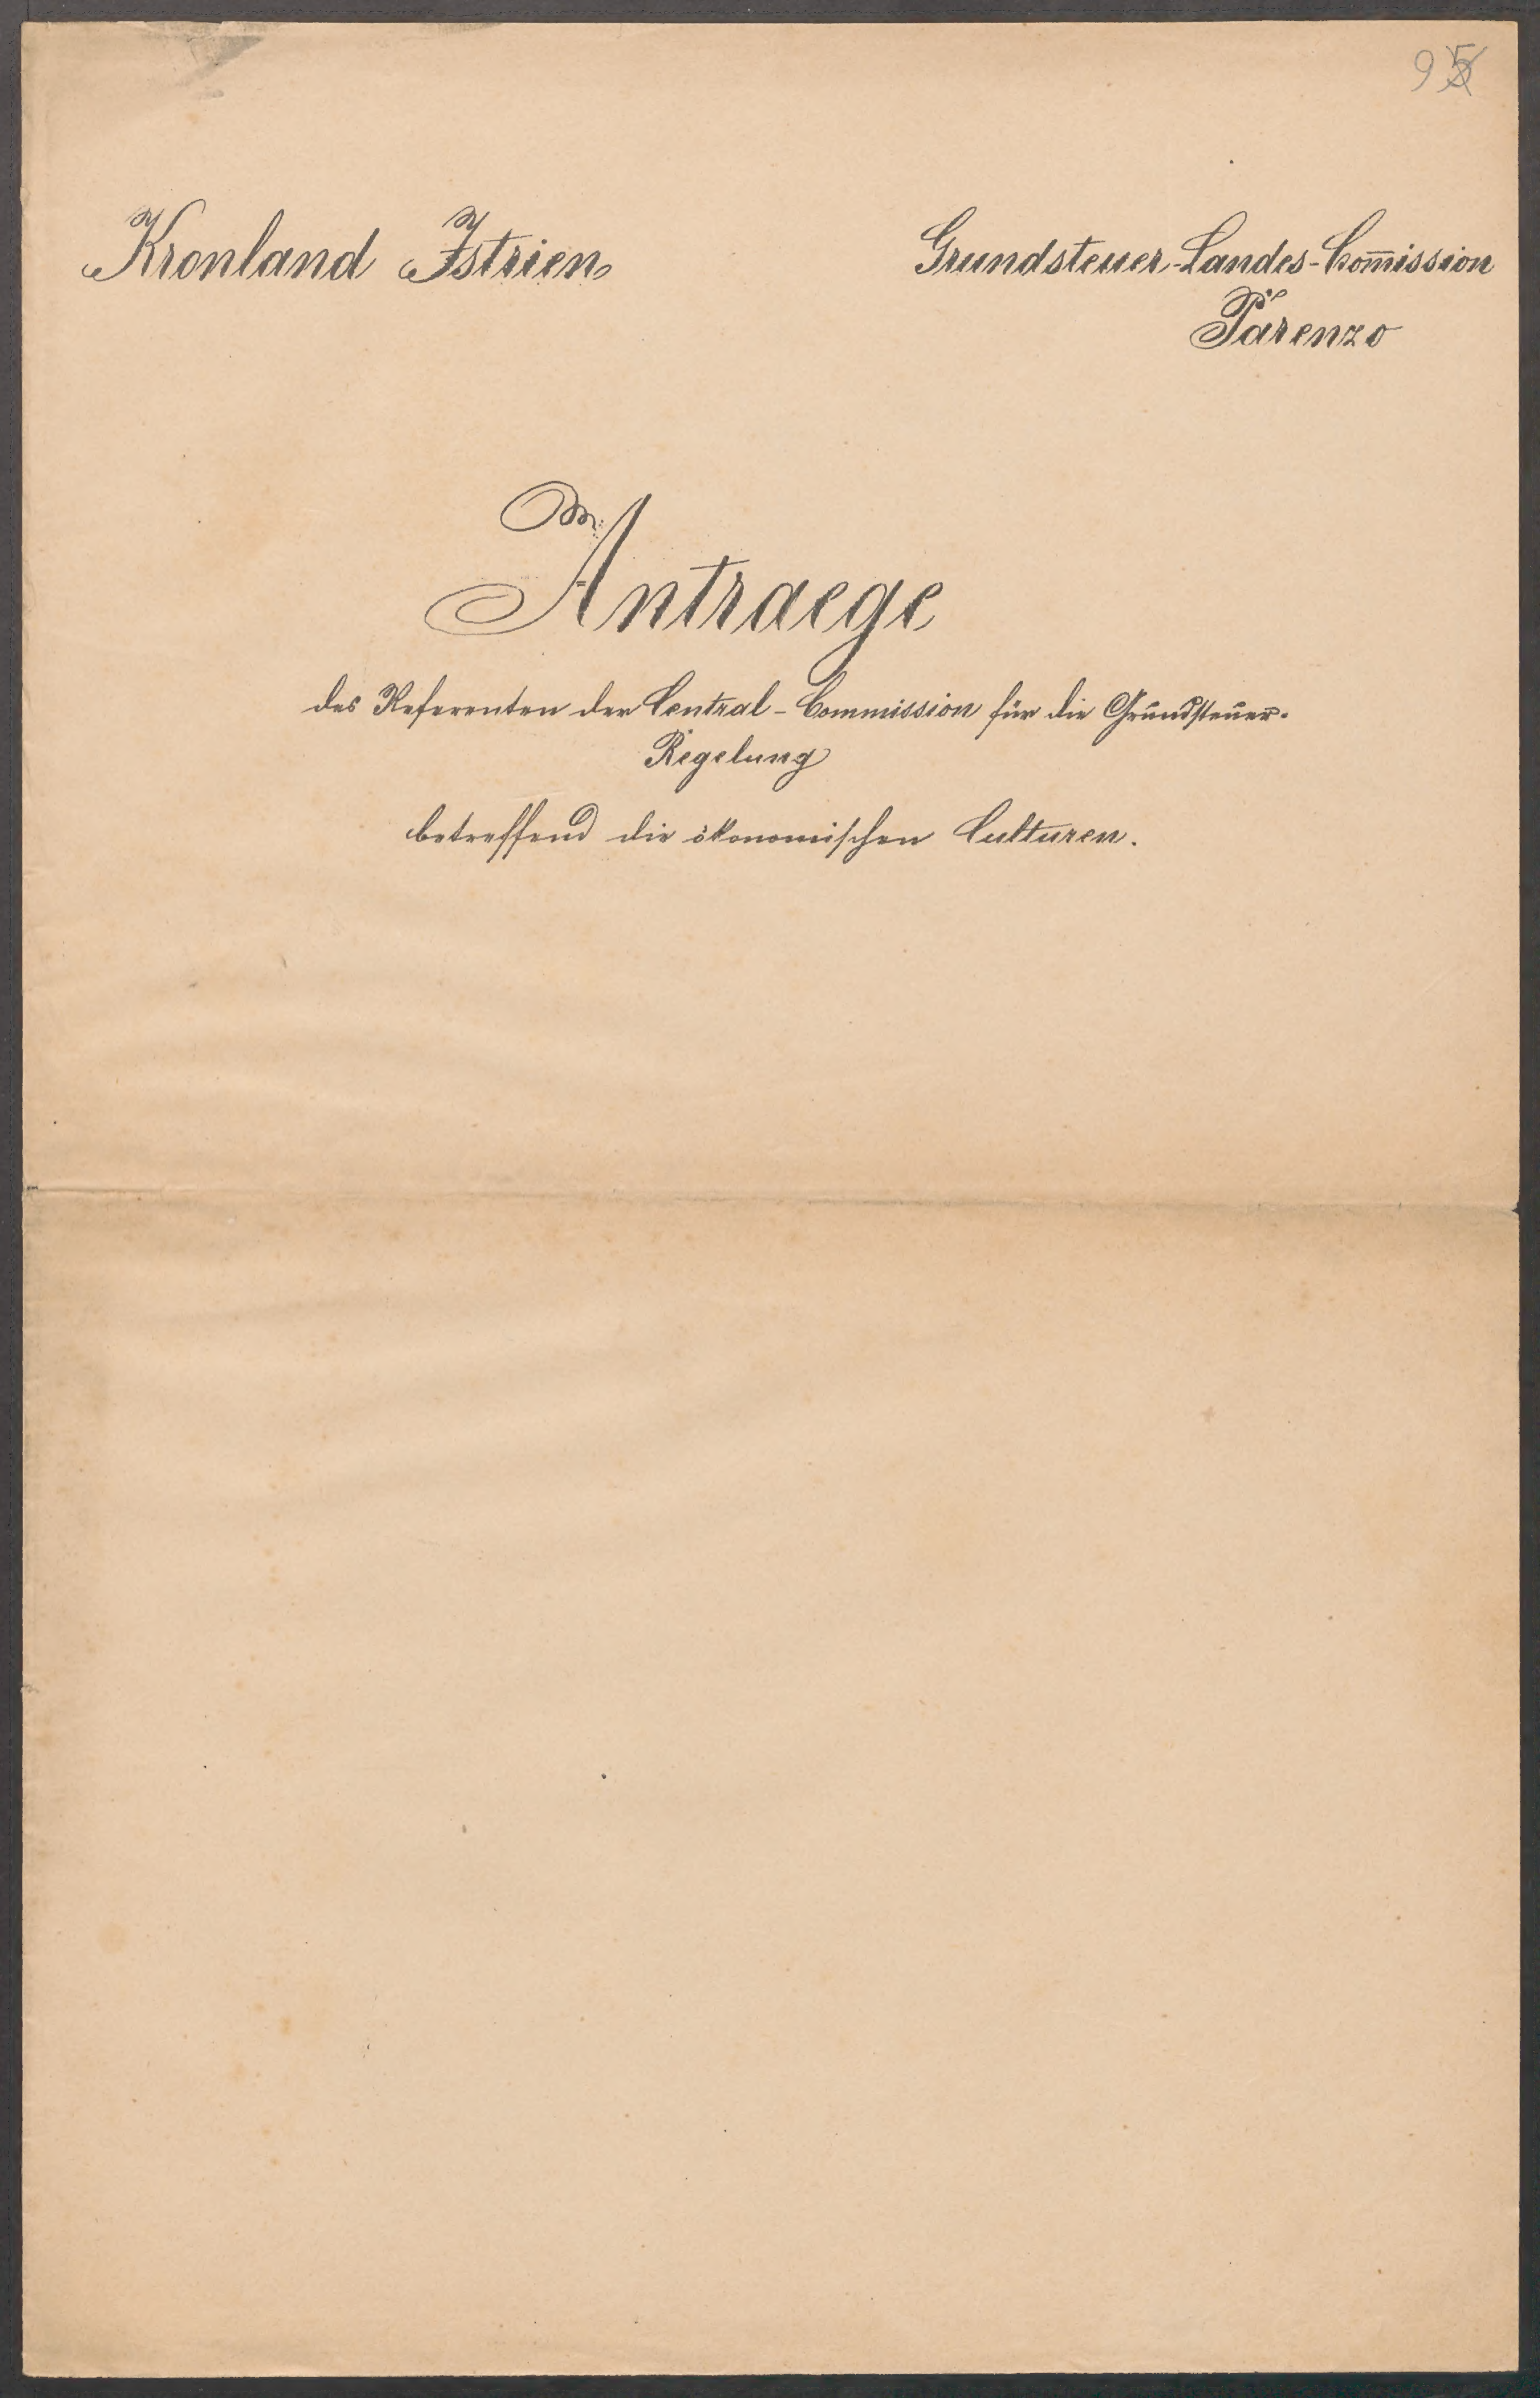 95
Kronland Istrien
Grundsteuer-Landes-Com̅ission
Parenzo
Antraege
des Referenten der Central-Commission für die Grundsteuer-
Regelung
betreffend die ökonomischen Culturen.